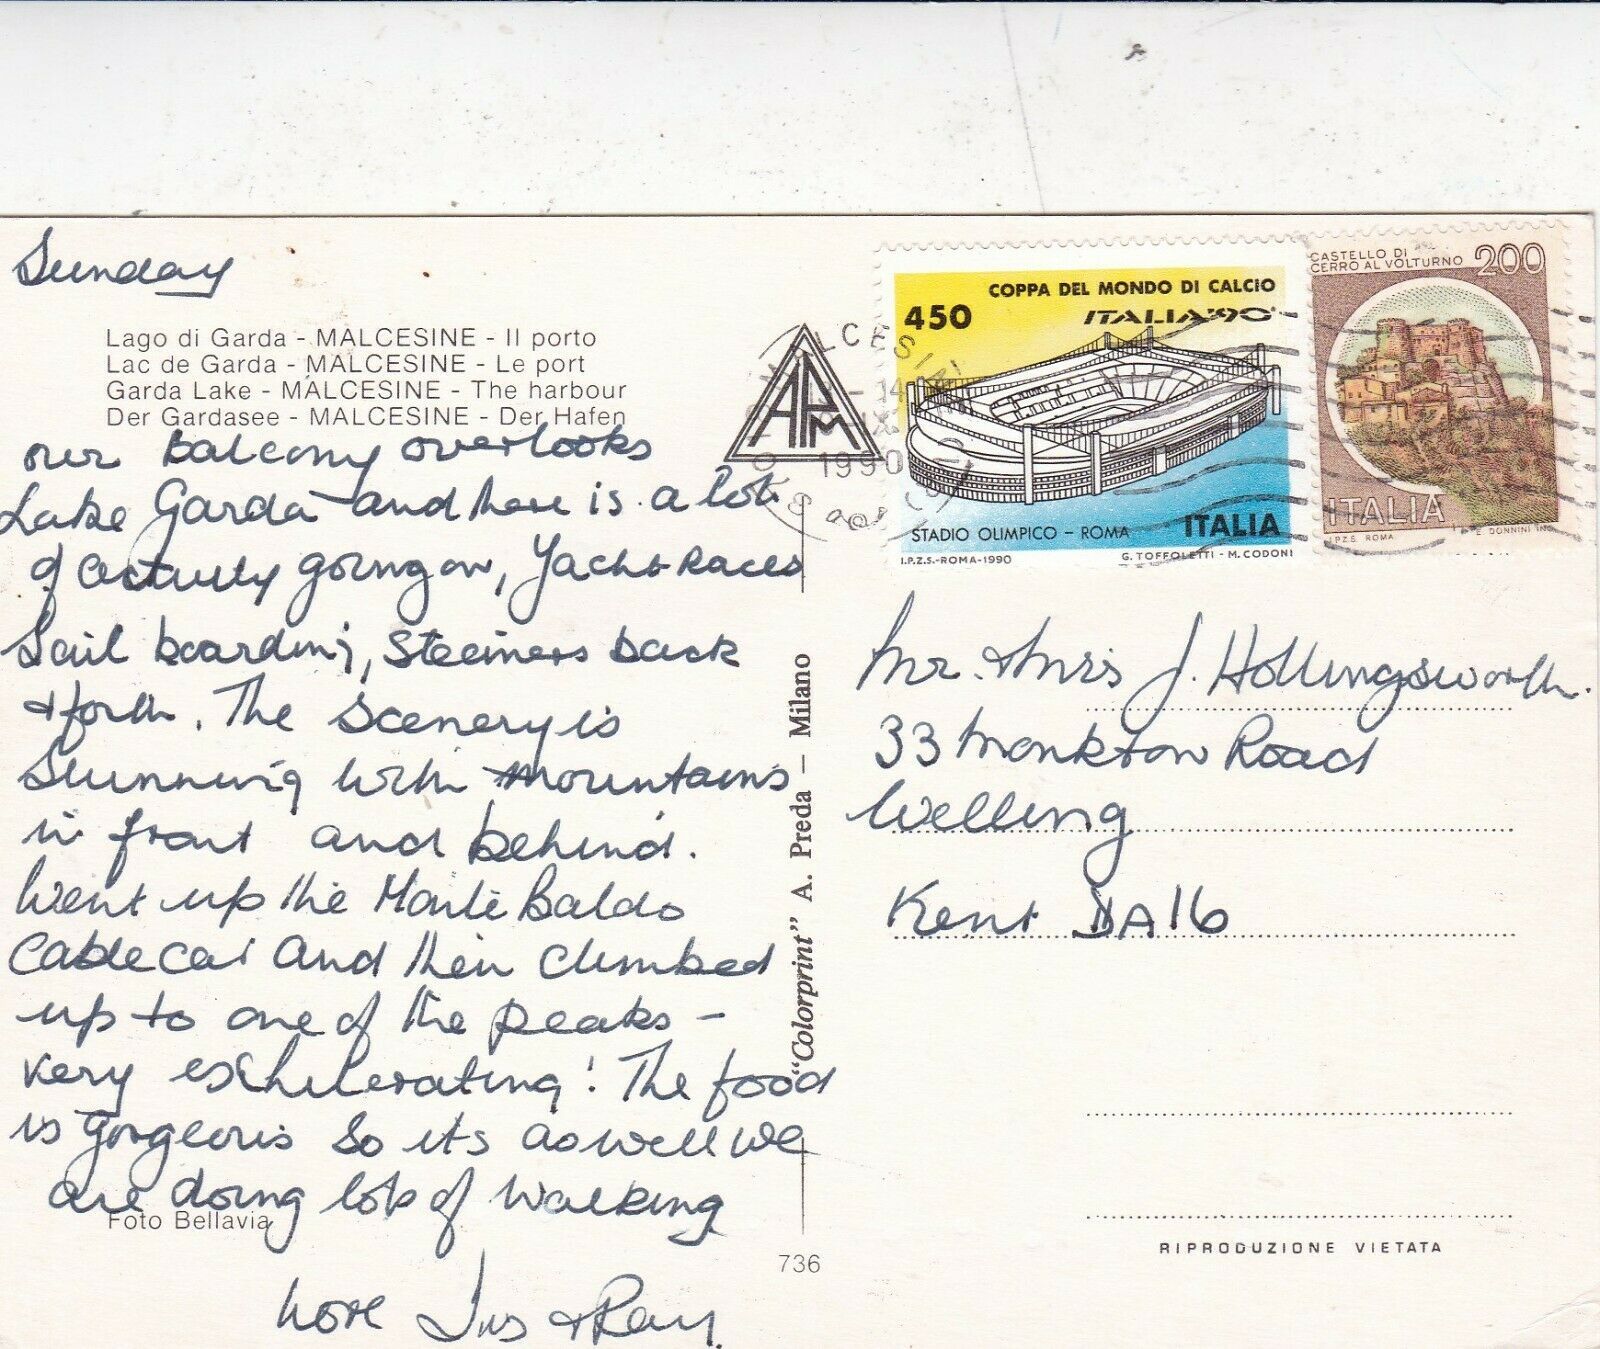 Sunday
Lago di Garda - MALCESINE - Il porto
Lac de Garda - MALCESINE - Le port
Garda Lake - MALCESINE - The harbour
Der Gardasee - MALCESINE - Der Hafen
our balcony overlooks
Lake Garda and there is a lot
of activity going on, Yacht Races
Sail boarding, Steamers back
& forth. The scenery is
Stunning with mountains
in front and behind.
Went up the Monte Baldo
Cable car and then climbed
up to one of the peaks -
very exhilerating! The food
is gorgeous so its as well we
are doing lots of walking
Love & Ray.
Foto Bellavia
736
"Colorprint" A. Preda - Milano
APM
MALCESINE
14
1990
450
COPPA DEL MONDO DI CALCIO
ITALIA'90
STADIO OLIMPICO - ROMA
ITALIA
I.P.Z.S.-ROMA-1990
G. TOFFOLETTI - M. CODONI
CASTELLO DI
CERRO AL VOLTURNO
200
ITALIA
I.P.Z.S. ROMA
E. DONNINI INC.
Mr. & Mrs J. Hollingsworth.
33 Monkton Road
Welling
Kent DA16
RIPRODUZIONE VIETATA